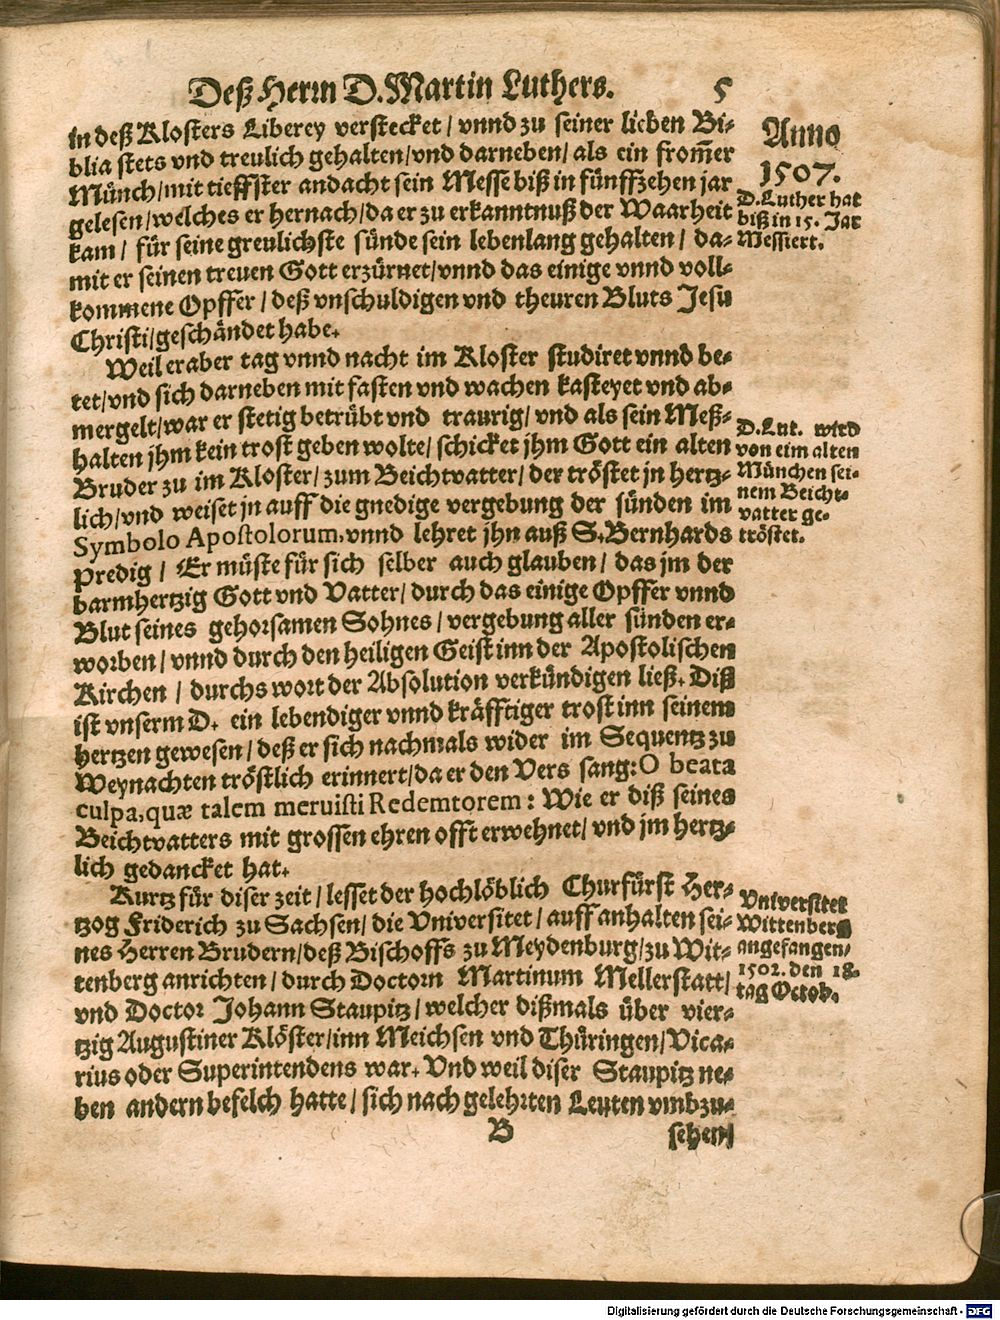 Deß Herrn D. Martin Luthers. 5
in deß Klosters Liberey verstecket / vnnd zu seiner lieben Bi-
blia stets vnd treulich gehalten / vnd darneben / als ein from̃er
Münch / mit tieffster andacht sein Messe biß in fünffzehen jar
gelesen / welches er hernach / da er zu erkanntnuß der Waarheit
kam / für seine greulichste sünde sein lebenlang gehalten / da-
mit er seinen treuen Gott erzürnet / vnnd das einige vnnd voll-
kommene Opffer / deß vnschuldigen vnd theuren Bluts Jesu
Christi / geschändet habe.
Anno
1507.
D. Luther hat
biß in 15. Jar
Messiert.
Weil er aber tag vnnd nacht im Kloster studiret vnnd be-
tet / vnd sich darneben mit fasten vnd wachen kasteyet vnd ab-
mergelt / war er stetig betrübt vnd traurig / vnd als sein Meß-
halten jhm kein trost geben wolte / schicket jhm Gott ein alten
Bruder zu im Kloster / zum Beichtvatter / der tröstet jn hertz-
lich / vnd weiset jn auff die gnedige vergebung der sünden im
Symbolo Apostolorum, vnnd lehret jhn auß S. Bernhards
Predig / Er müste für sich selber auch glauben / das jm der
barmhertzig Gott vnd Vatter / durch das einige Opffer vnnd
Blut seines gehorsamen Sohnes / vergebung aller sünden er-
worben / vnnd durch den heiligen Geist inn der Apostolischen
Kirchen / durchs wort der Absolution verkündigen ließ. Diß
ist vnserm D. ein lebendiger vnnd kräfftiger trost inn seinem
hertzen gewesen / deß er sich nachmals wider im Sequentz zu
Weynachten tröstlich erinnert / da er den Vers sang: O beata
culpa, quæ talem meruisti Redemtorem: Wie er diß seines
Beichtvatters mit grossen ehren offt erwehnet / vnd jm hertz-
lich gedancket hat.
D. Lut. wird
von eim alten
München sei-
nem Beicht-
vatter ge-
tröstet.
Kurtz für diser zeit / lesset der hochlöblich Churfürst Her-
tzog Friderich zu Sachsen / die Vniversitet / auff anhalten sei-
nes Herren Brudern / deß Bischoffs zu Meydenburg / zu Wit-
tenberg anrichten / durch Doctorn Martinum Mellerstatt /
vnd Doctor Johann Staupitz / welcher dißmals über vier-
tzig Augustiner Klöster / inn Meichsen vnd Thüringen / Vica-
rius oder Superintendens war. Vnd weil diser Staupitz ne-
ben andern befelch hatte / sich nach gelehrten Leuten vmbzu-
Vniversitet
Wittenberg
angefangen /
1502. den 18.
tag Octob.
B sehen /
Digitalisierung gefördert durch die Deutsche Forschungsgemeinschaft - DFG